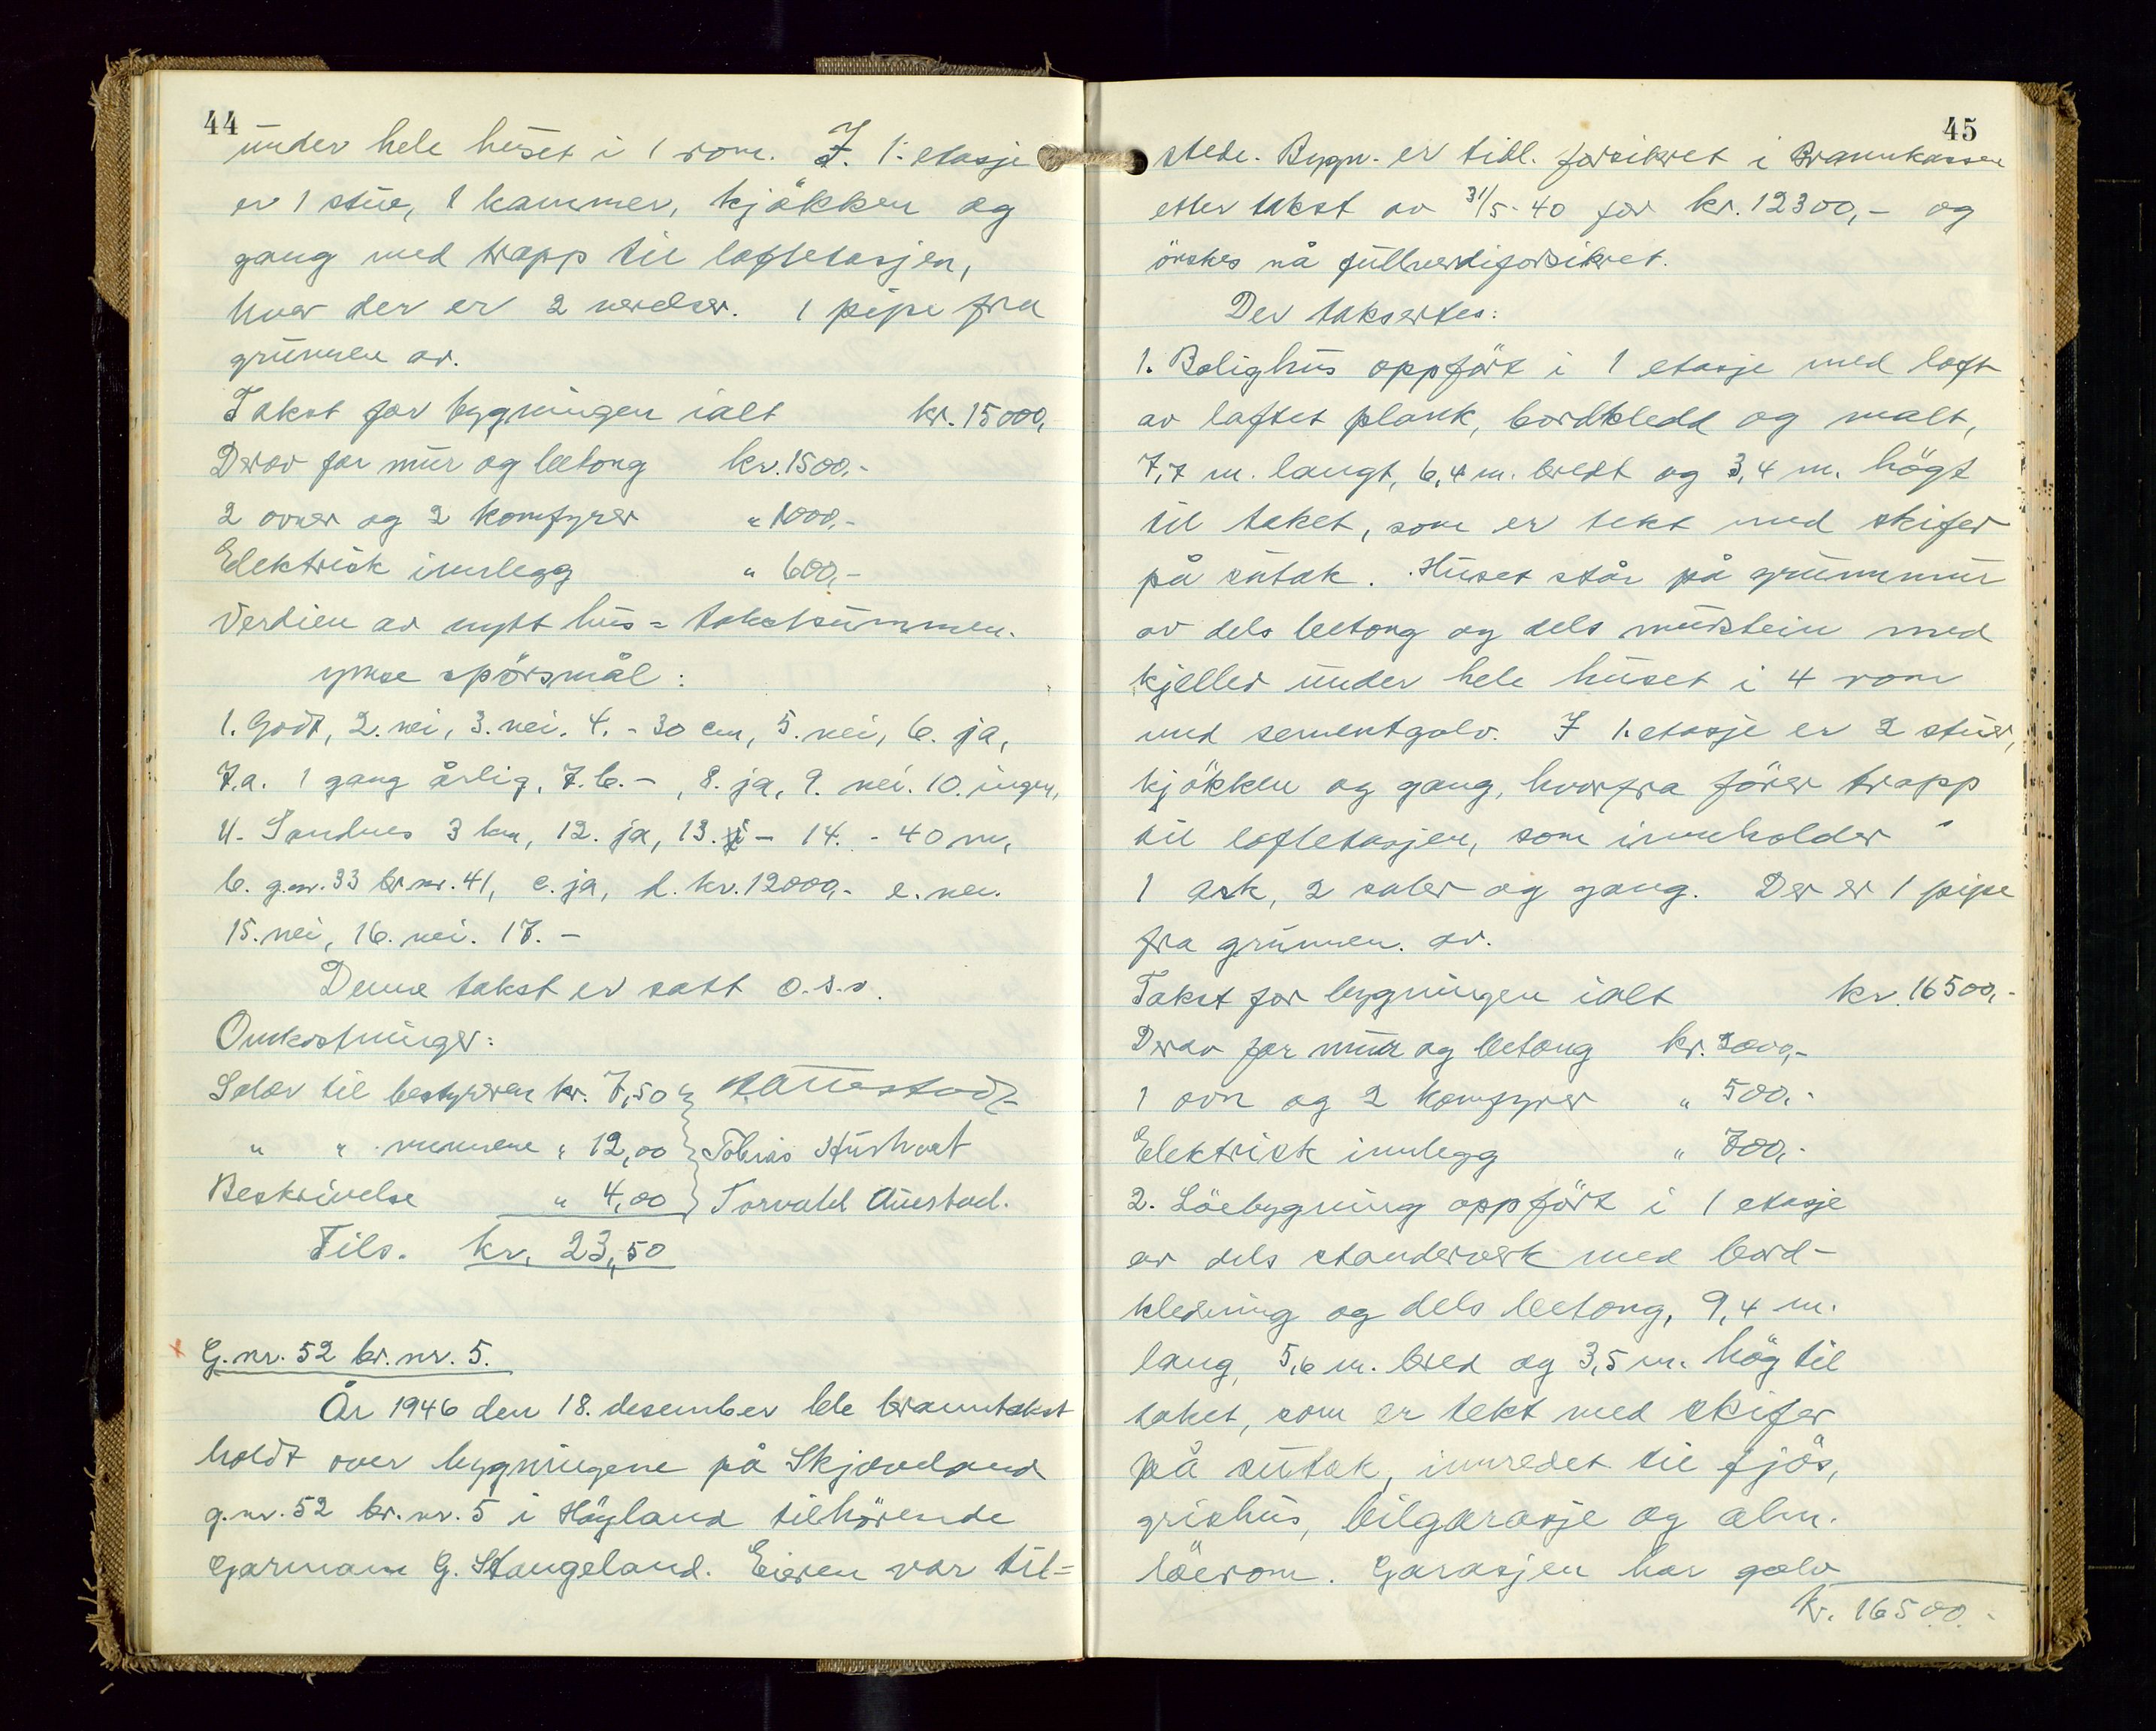 44
under hele huset i 1 rom. I. 1. etasje
er 1 stue, 1 kammer, kjökken og
gang med trapp til loftetasjen,
hvor der er 2 verelser. 1 pipe fra
grunnen av.
Takst for bygningen ialt kr. 15000,
Derav for mur og betong kr. 1500,-
2 ovner og 2 komfyrer " 1000,-
Elektrisk innlegg " 600,-
Verdien av nytt hus = takstsummen.
ymse spörsmål:
1. Godt, 2. nei, 3. nei. 4. - 30 cm, 5. nei, 6. ja,
7.a. 1 gang årlig, 7.b. - , 8. ja, 9. nei. 10. ingen,
11. Sandnes 3 km, 12. ja, 13. - 14. - 40 m,
b. g.nr. 33 br.nr. 41, c. ja, d. kr. 12000,- e. nei.
15. nei, 16. nei. 17. -
Denne takst er satt o.s.v.
Omkostninger:
Salær til bestyreren kr. 7,50
" " mennene " 12,00 Tobias Hushvet
Beskrivelse " 4,00 Torvald Austad.
Tils. kr. 23,50
G.nr. 52 br.nr. 5.
År 1946 den 18. desember ble branntakst
holdt over bygningene på Skjæveland
g.nr. 52 br.nr. 5 i Høyland tilhörende
Garmann G. Stangeland. Eieren var til=
45
stede. Bygn. er tidl. forsikret i Brannkassen
etter takst av 31/5-40 for kr. 12300,- og
önskes nå fullverdiforsikret.
Der taksertes:
1. Bolighus oppfört i 1 etasje med loft
av laftet plank, bordkledd og malt,
7,7 m. langt, 6,4 m. bredt og 3,4 m. högt
til taket, som er tekt med skifer
på sutak. Huset står på grunnmur
av dels betong og dels murstein med
kjeller under hele huset i 4 rom
med sementgolv. I 1. etasje er 2 stuer,
kjökken og gang, hvorfra förer trapp
til loftetasjen, som inneholder
1 ark, 2 saler og gang. Der er 1 pipe
fra grunnen av.
Takst for bygningen ialt kr. 16500,-
Derav for mur og betong kr. 3000,-
1 ovn og 2 komfyrer " 500,-
Elektrisk innlegg " 700,-
2. Löebygning oppfört i 1 etasje
av dels standerverk med bord-
kledning og dels betong, 9,4 m.
lang, 5,6 m. bred og 3,5 m. hög til
taket, som er tekt med skifer
på sutak, innredet til fjös,
grishus, bilgarasje og alm.
löerom. Garasjen har golv
kr. 16500.-